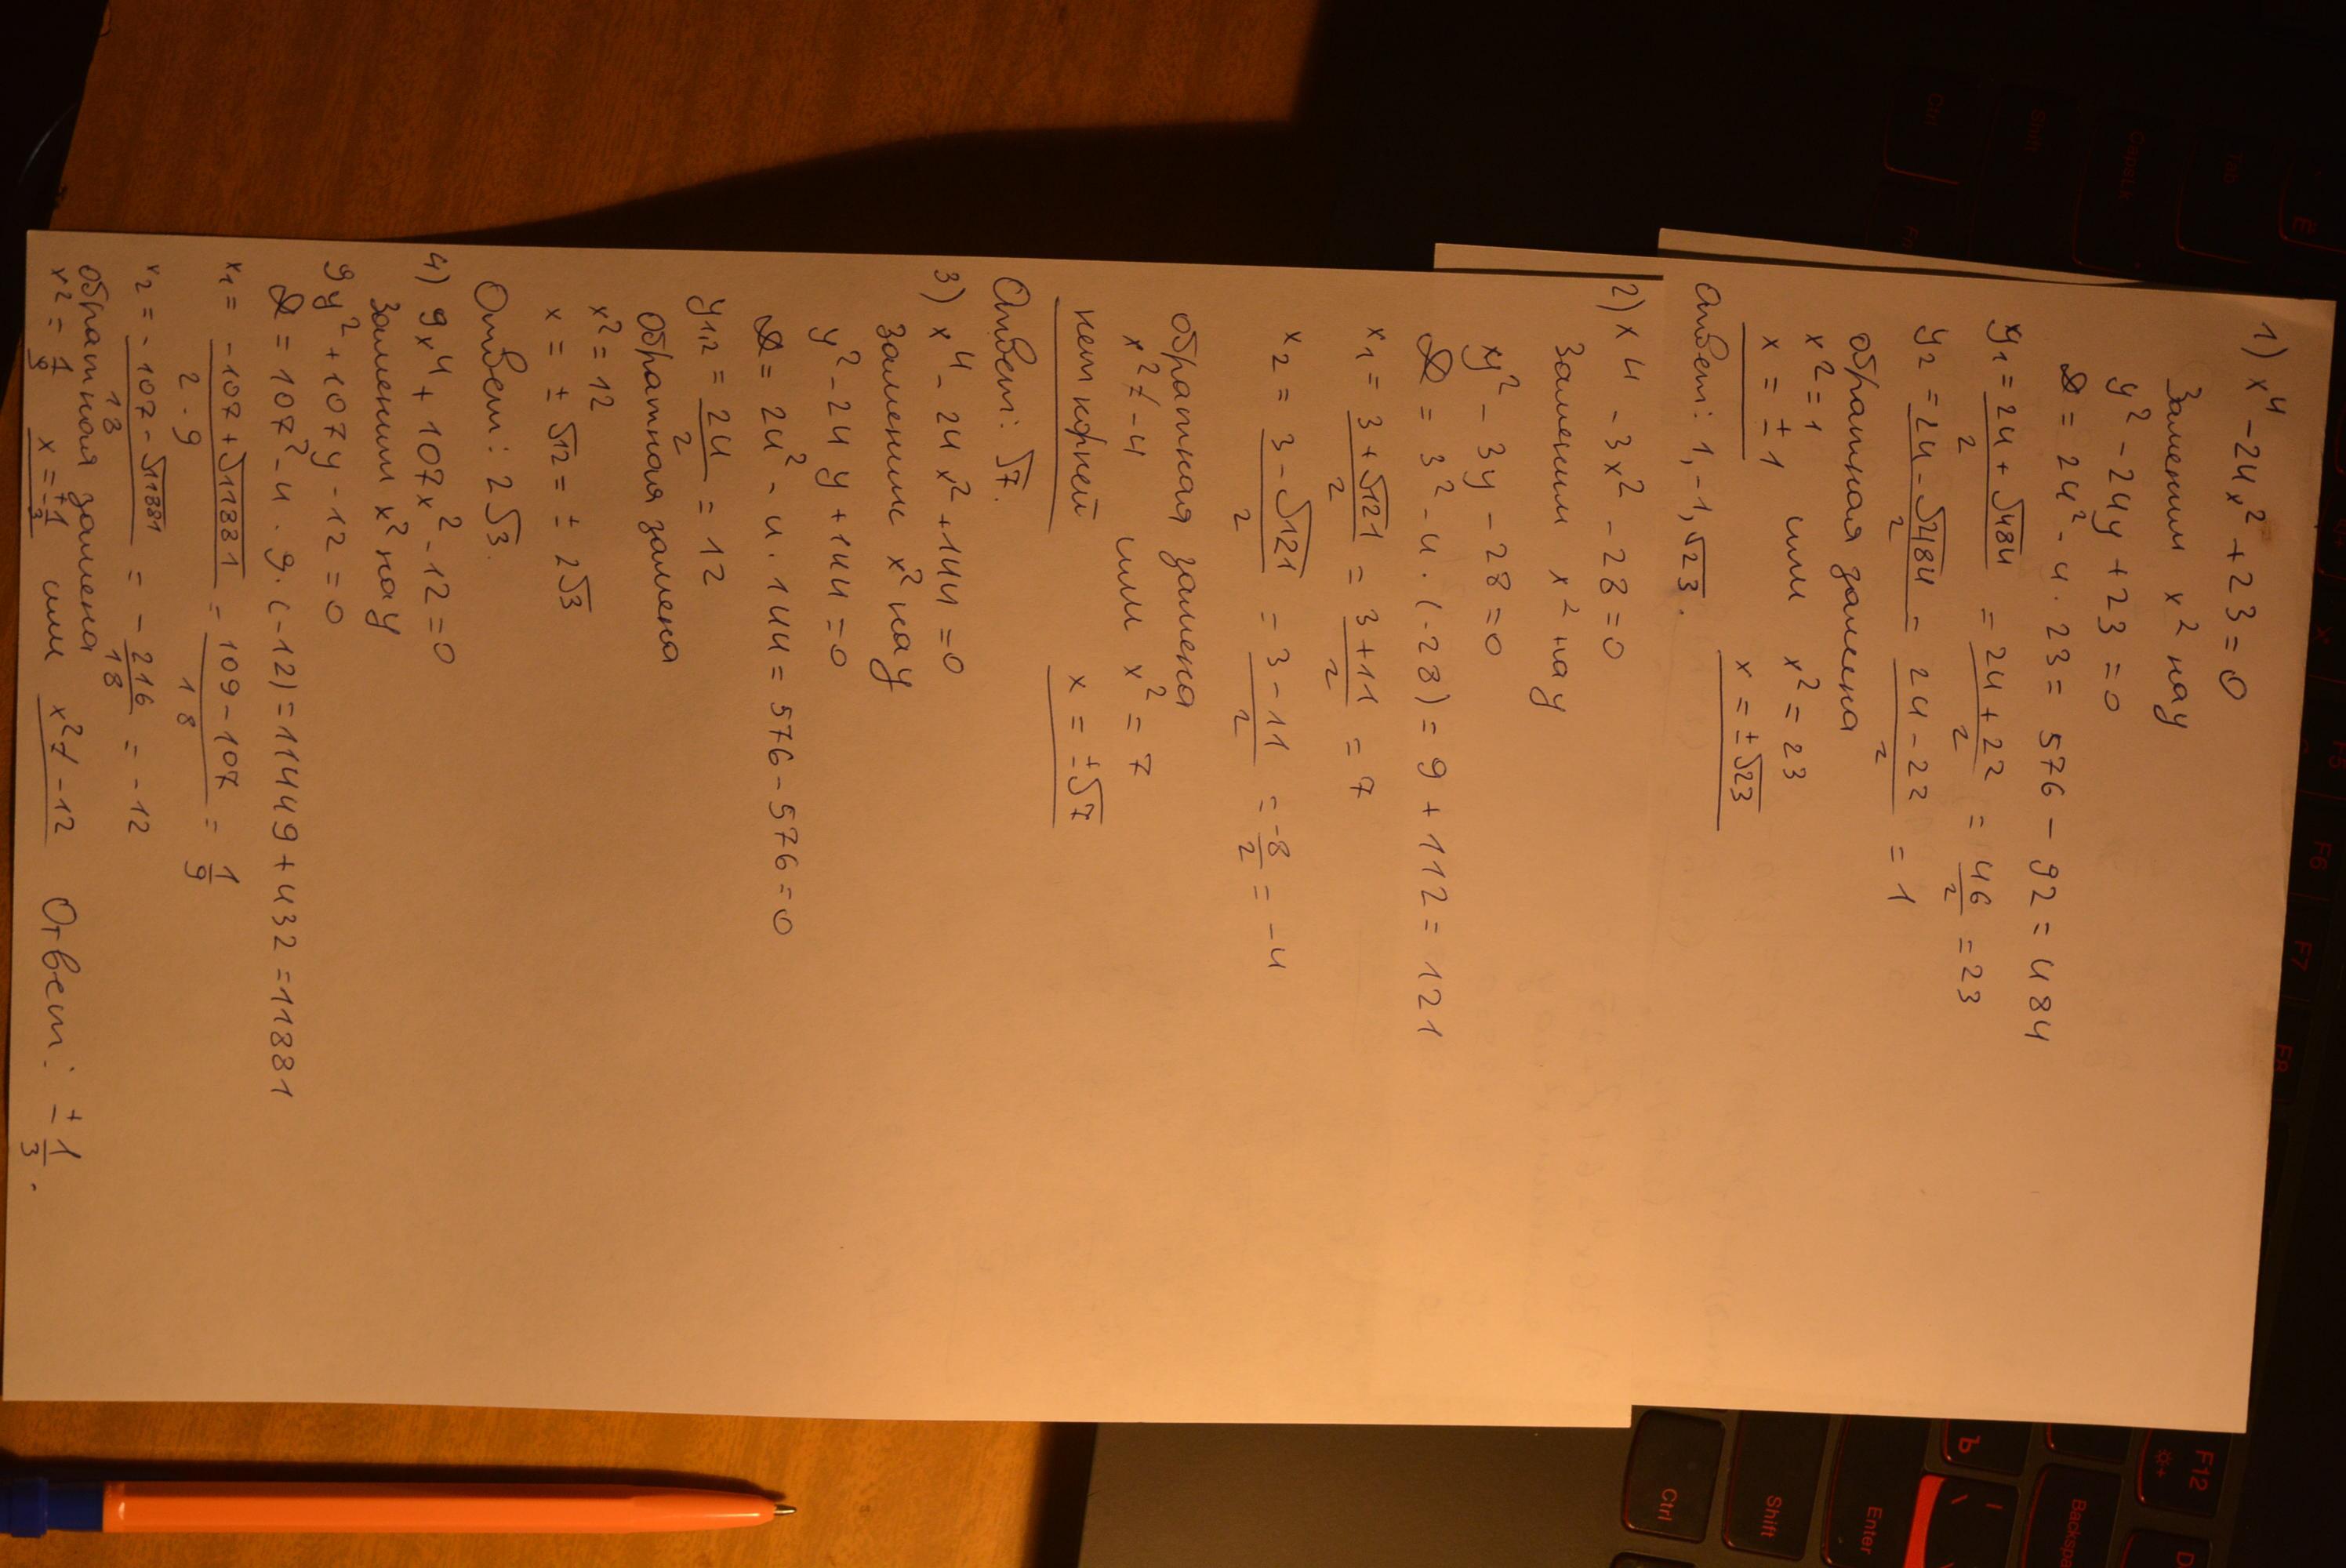 1) x⁴ - 24x² + 23 = 0
Заменим x² на y
y² - 24y + 23 = 0
D = 24² - 4 · 23 = 576 - 92 = 484
y₁ = (24 + √484)/2 = (24 + 22)/2 = 46/2 = 23
y₂ = (24 - √484)/2 = (24 - 22)/2 = 1
обратная замена
x² = 1 или x² = 23
x = ± 1 x = ±√23
Ответ: 1, -1, √23.
2) x⁴ - 3x² - 28 = 0
Заменим x² на y
y² - 3y - 28 = 0
D = 3² - 4 · (-28) = 9 + 112 = 121
x₁ = (3 + √121)/2 = (3 + 11)/2 = 7
x₂ = (3 - √121)/2 = (3 - 11)/2 = -8/2 = -4
обратная замена
x² ≠ -4 или x² = 7
нет корней x = ±√7
Ответ: √7.
3) x⁴ - 24x² + 144 = 0
Заменим x² на y
y² - 24y + 144 = 0
D = 24² - 4 · 144 = 576 - 576 = 0
y₁,₂ = 24/2 = 12
обратная замена
x² = 12
x = ± √12 = ± 2√3
Ответ: 2√3.
4) 9x⁴ + 107x² - 12 = 0
Заменим x² на y
9y² + 107y - 12 = 0
D = 107² - 4 · 9 · (-12) = 11449 + 432 = 11881
x₁ = (-107 + √11881)/(2 · 9) = (109 - 107)/18 = 1/9
x₂ = (-107 - √11881)/18 = -216/18 = -12
обратная замена
x² = 1/9 x = ±1/3 или x² ≠ -12 Ответ: ± 1/3.
Ctrl
Shift
CapsLk
Tab
Ё
Fn
F5
F6
F7
F8
F12
Backspa
Ъ
\
Enter
Shift
Ctrl